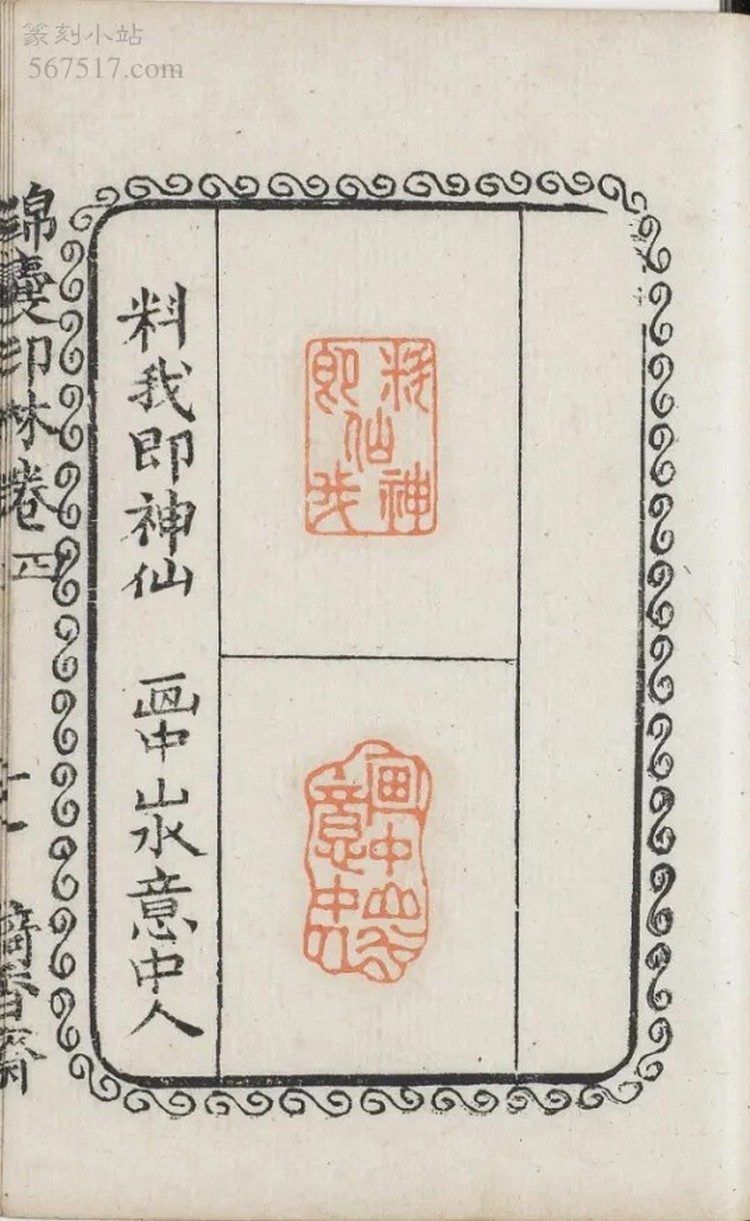 篆刻小站
567517.com
料我即神仙
画中山水意中人
料神仙即我
画中山水意中人
锦囊印林卷四